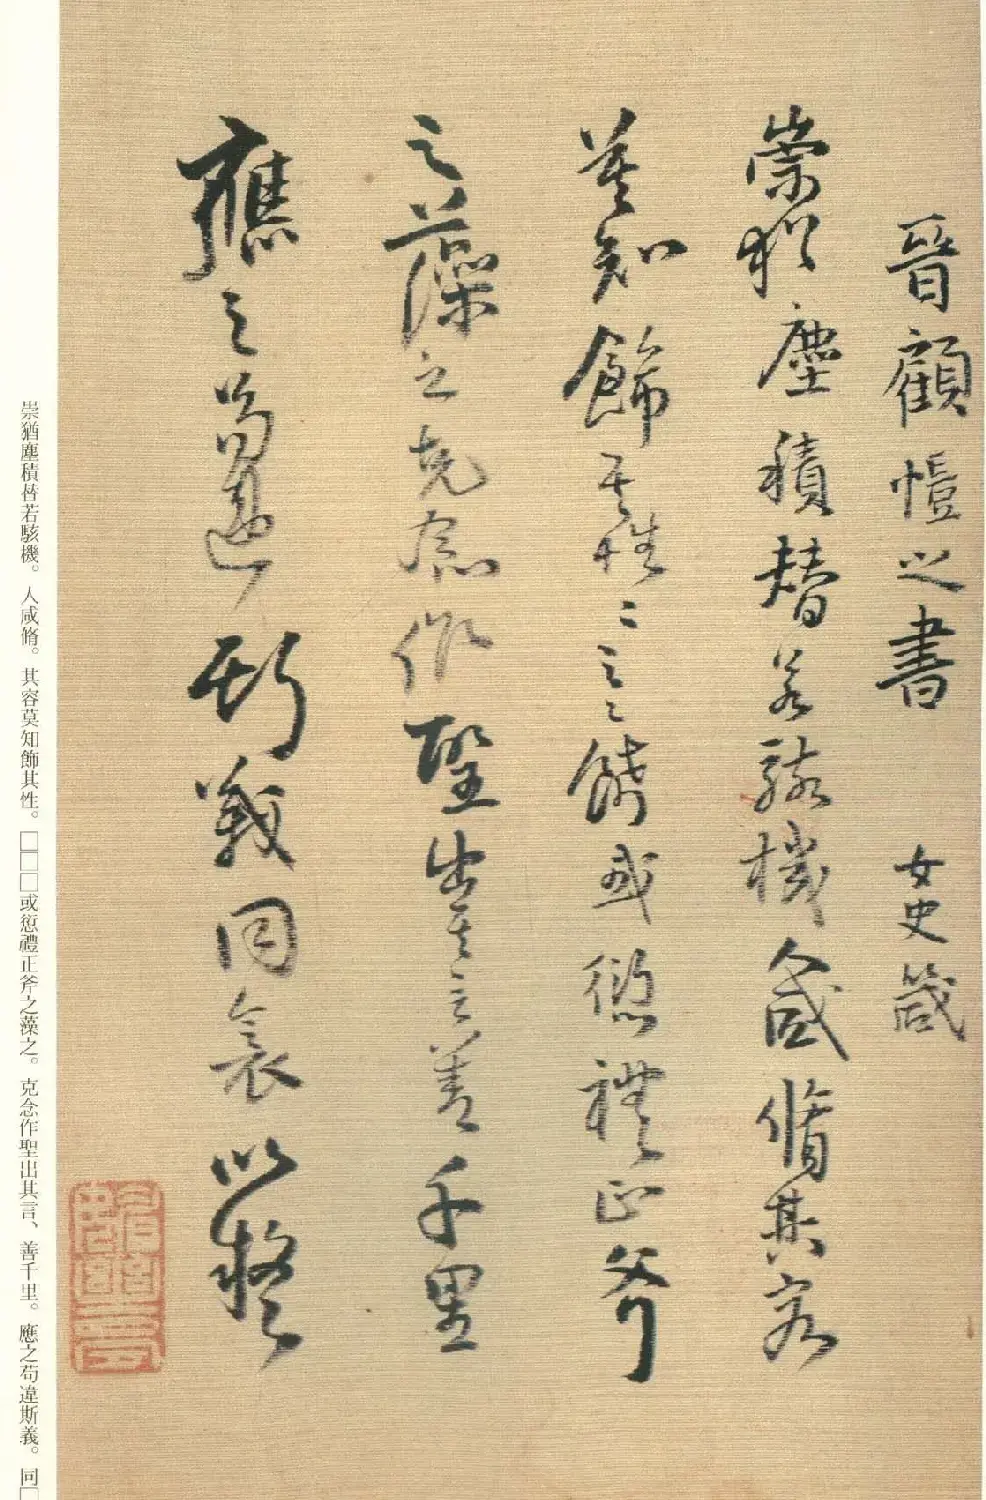 晉顧愷之書 女史箴
崇猶塵積替若駭機人咸脩其容
莫知飾其性性之之飾或愆禮正斧
之藻之克念作聖出其言善千里
應之苟違斯義同衾以疑
崇猶塵積替若駭機。人咸脩。其容莫知飾其性。□□□或愆禮正斧之藻之。克念作聖出其言、善千里。應之苟違斯義。同□